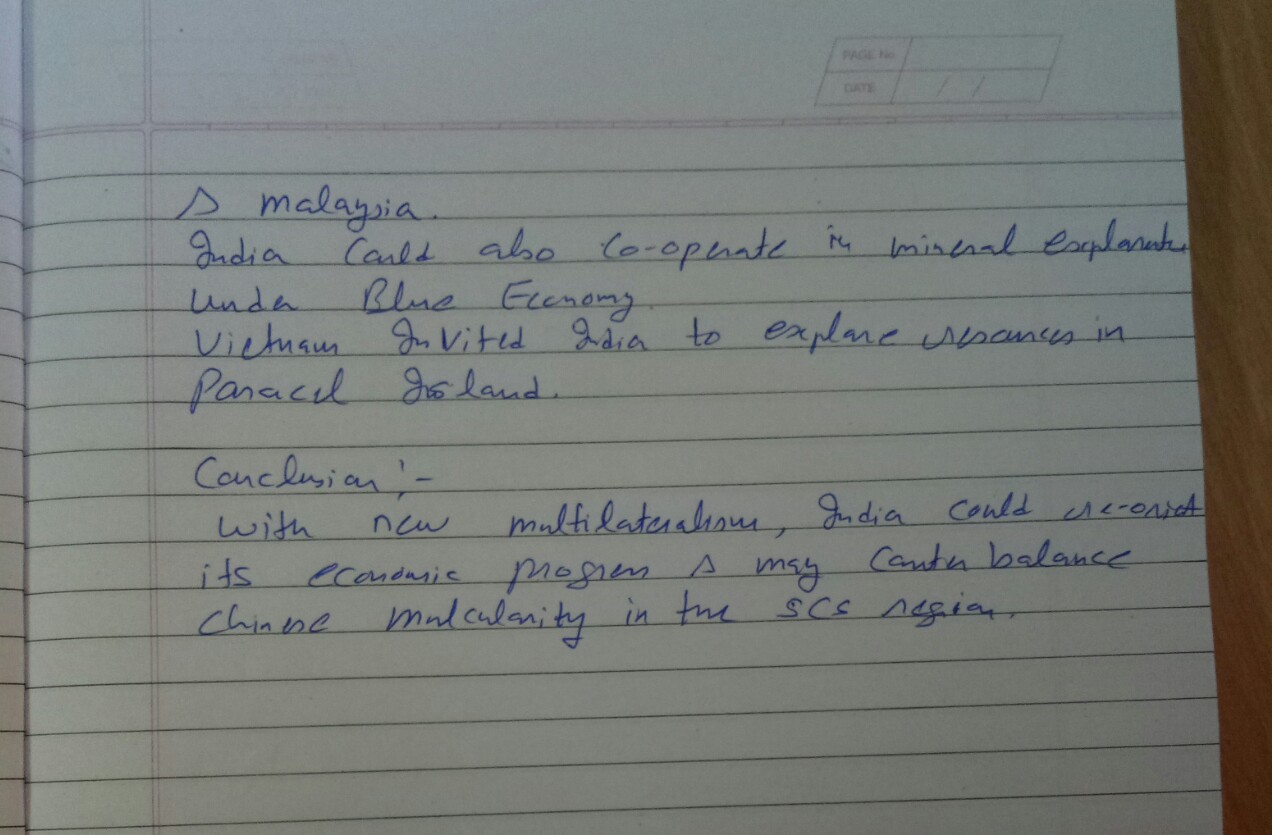 PAGE No.
DATE / /
& malaysia.
India Could also Co-operate in mineral exploration
Under Blue Economy.
Vietnam Invited India to explore resources in
Paracel Island.
Conclusion :-
With new multilateralism, India could re-orient
its economic progress & may Counter balance
Chinese muscularity in the SCS region.